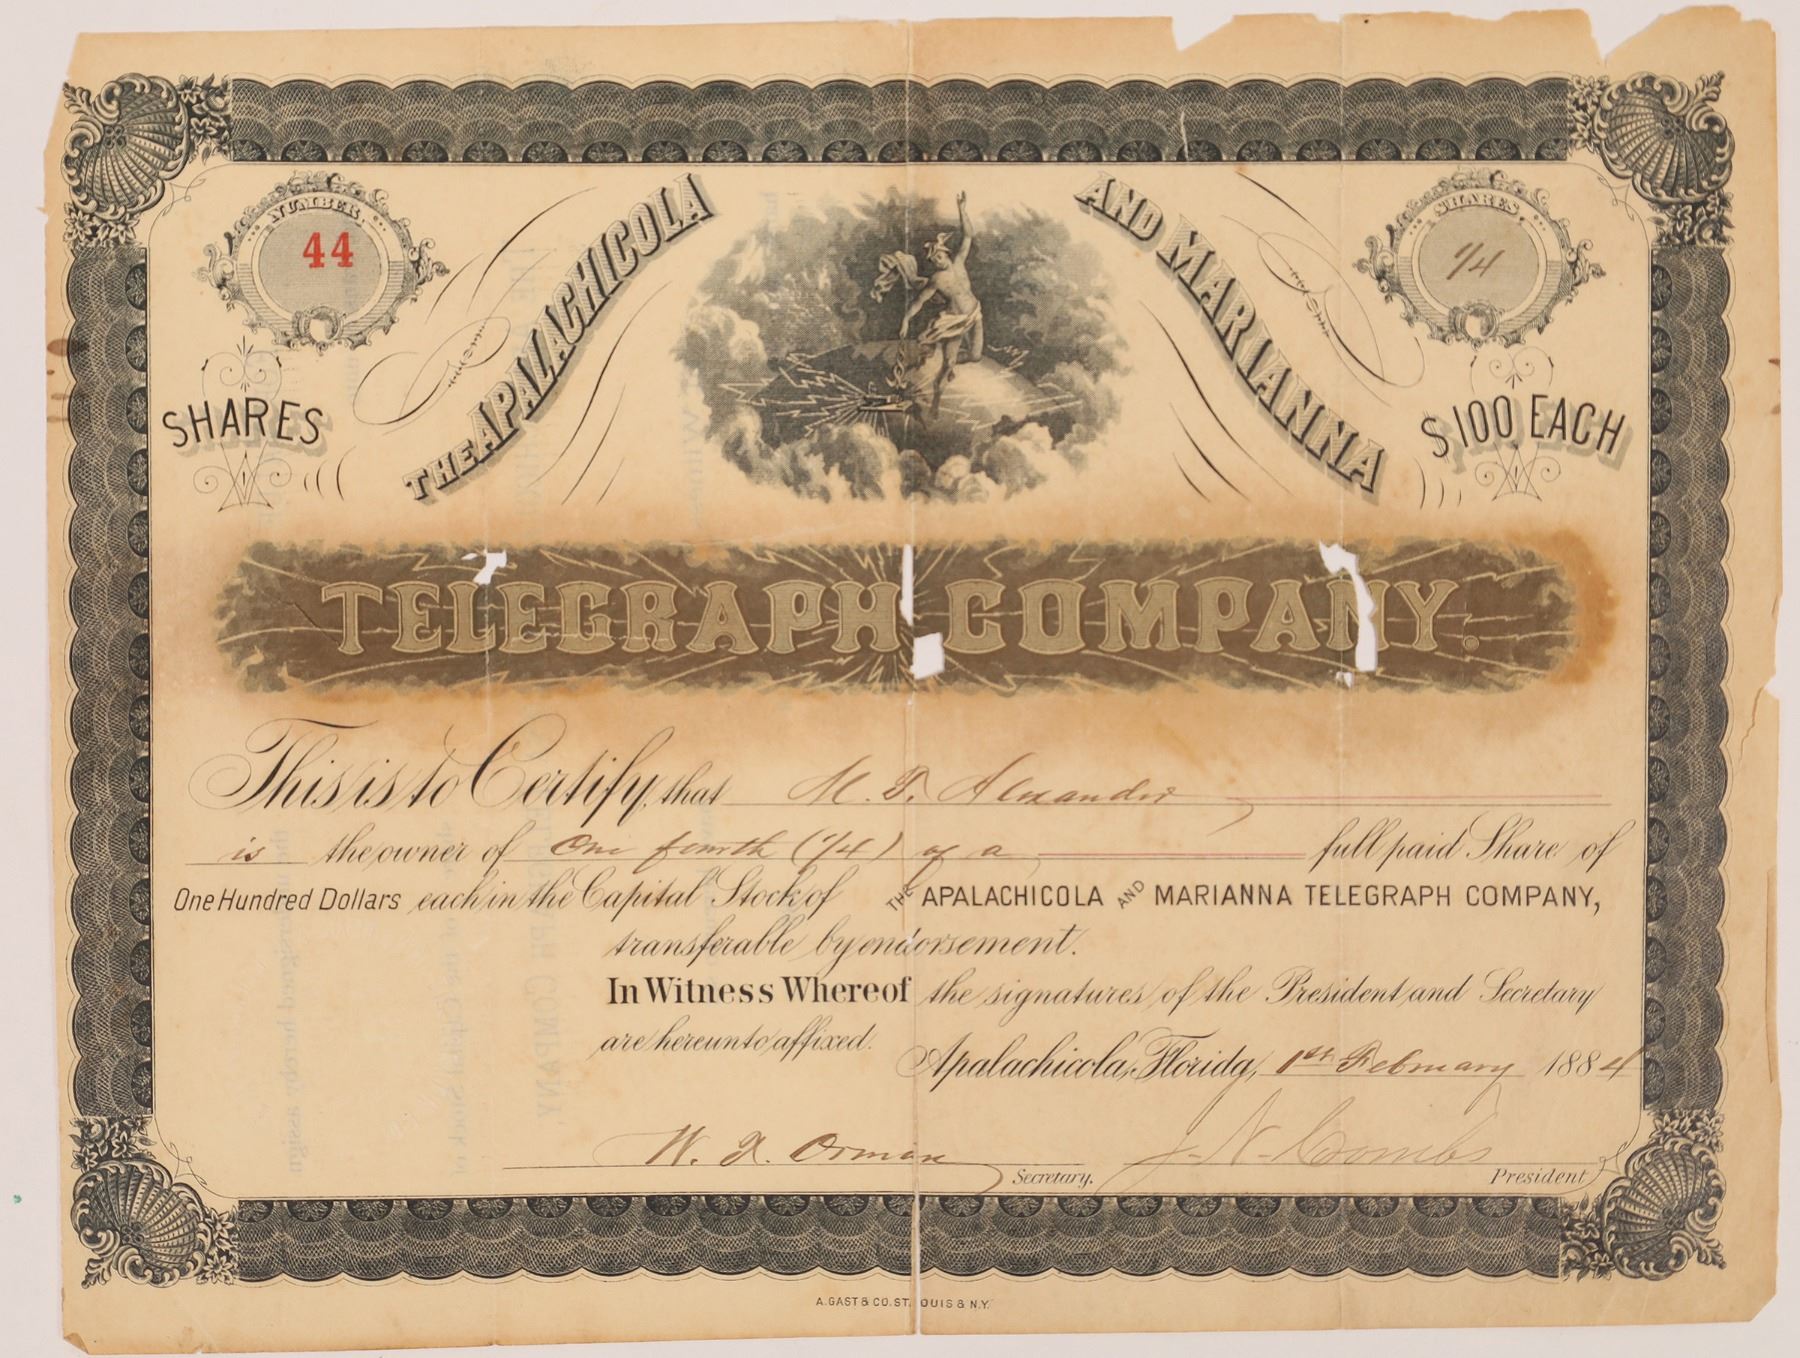 NUMBER
44
THE APALACHICOLA
AND MARIANNA
SHARES
1/4
SHARES
$100 EACH
TELEGRAPH COMPANY.
This is to Certify, that M. F. Alexander
is the owner of One fourth (1/4) of a full paid Share of
One Hundred Dollars each in the Capital Stock of THE APALACHICOLA AND MARIANNA TELEGRAPH COMPANY,
transferable by endorsement.
In Witness Whereof the signatures of the President and Secretary
are hereunto affixed.
Apalachicola, Florida, 1st February 1884
W. T. Orman Secretary.
J. N. Combs President
A. GAST & CO. ST. OUIS & N.Y.